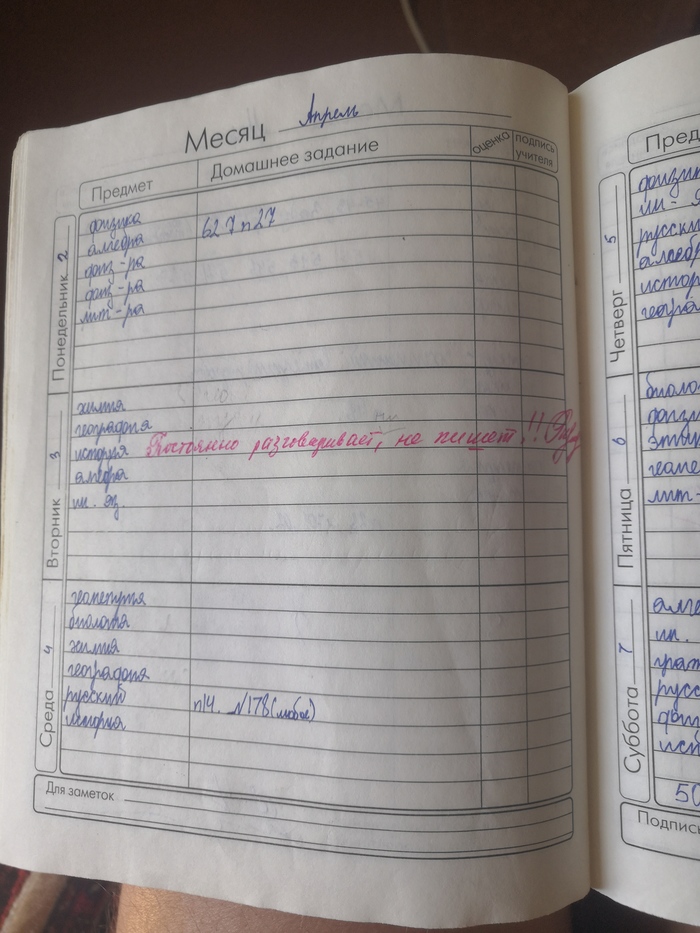 Месяц Апрель
Предмет Домашнее задание оценка подпись учителя
Понедельник 2
физика
алгебра
физ-ра
физ-ра
лит-ра
Вторник 3
химия
география
история Постоянно разговаривает, не пишет!!
алгебра
ин. яз.
Среда 4
геометрия
биология
химия
география
русский п14. №178(любое)
история
Для заметок
Пред
Четверг 5
физик
русски
алгебр
истор
геогра
Пятница 6
биоло
физи
геоме
лит-
Суббота 7
алге
ин.
русс
ист
Подпись